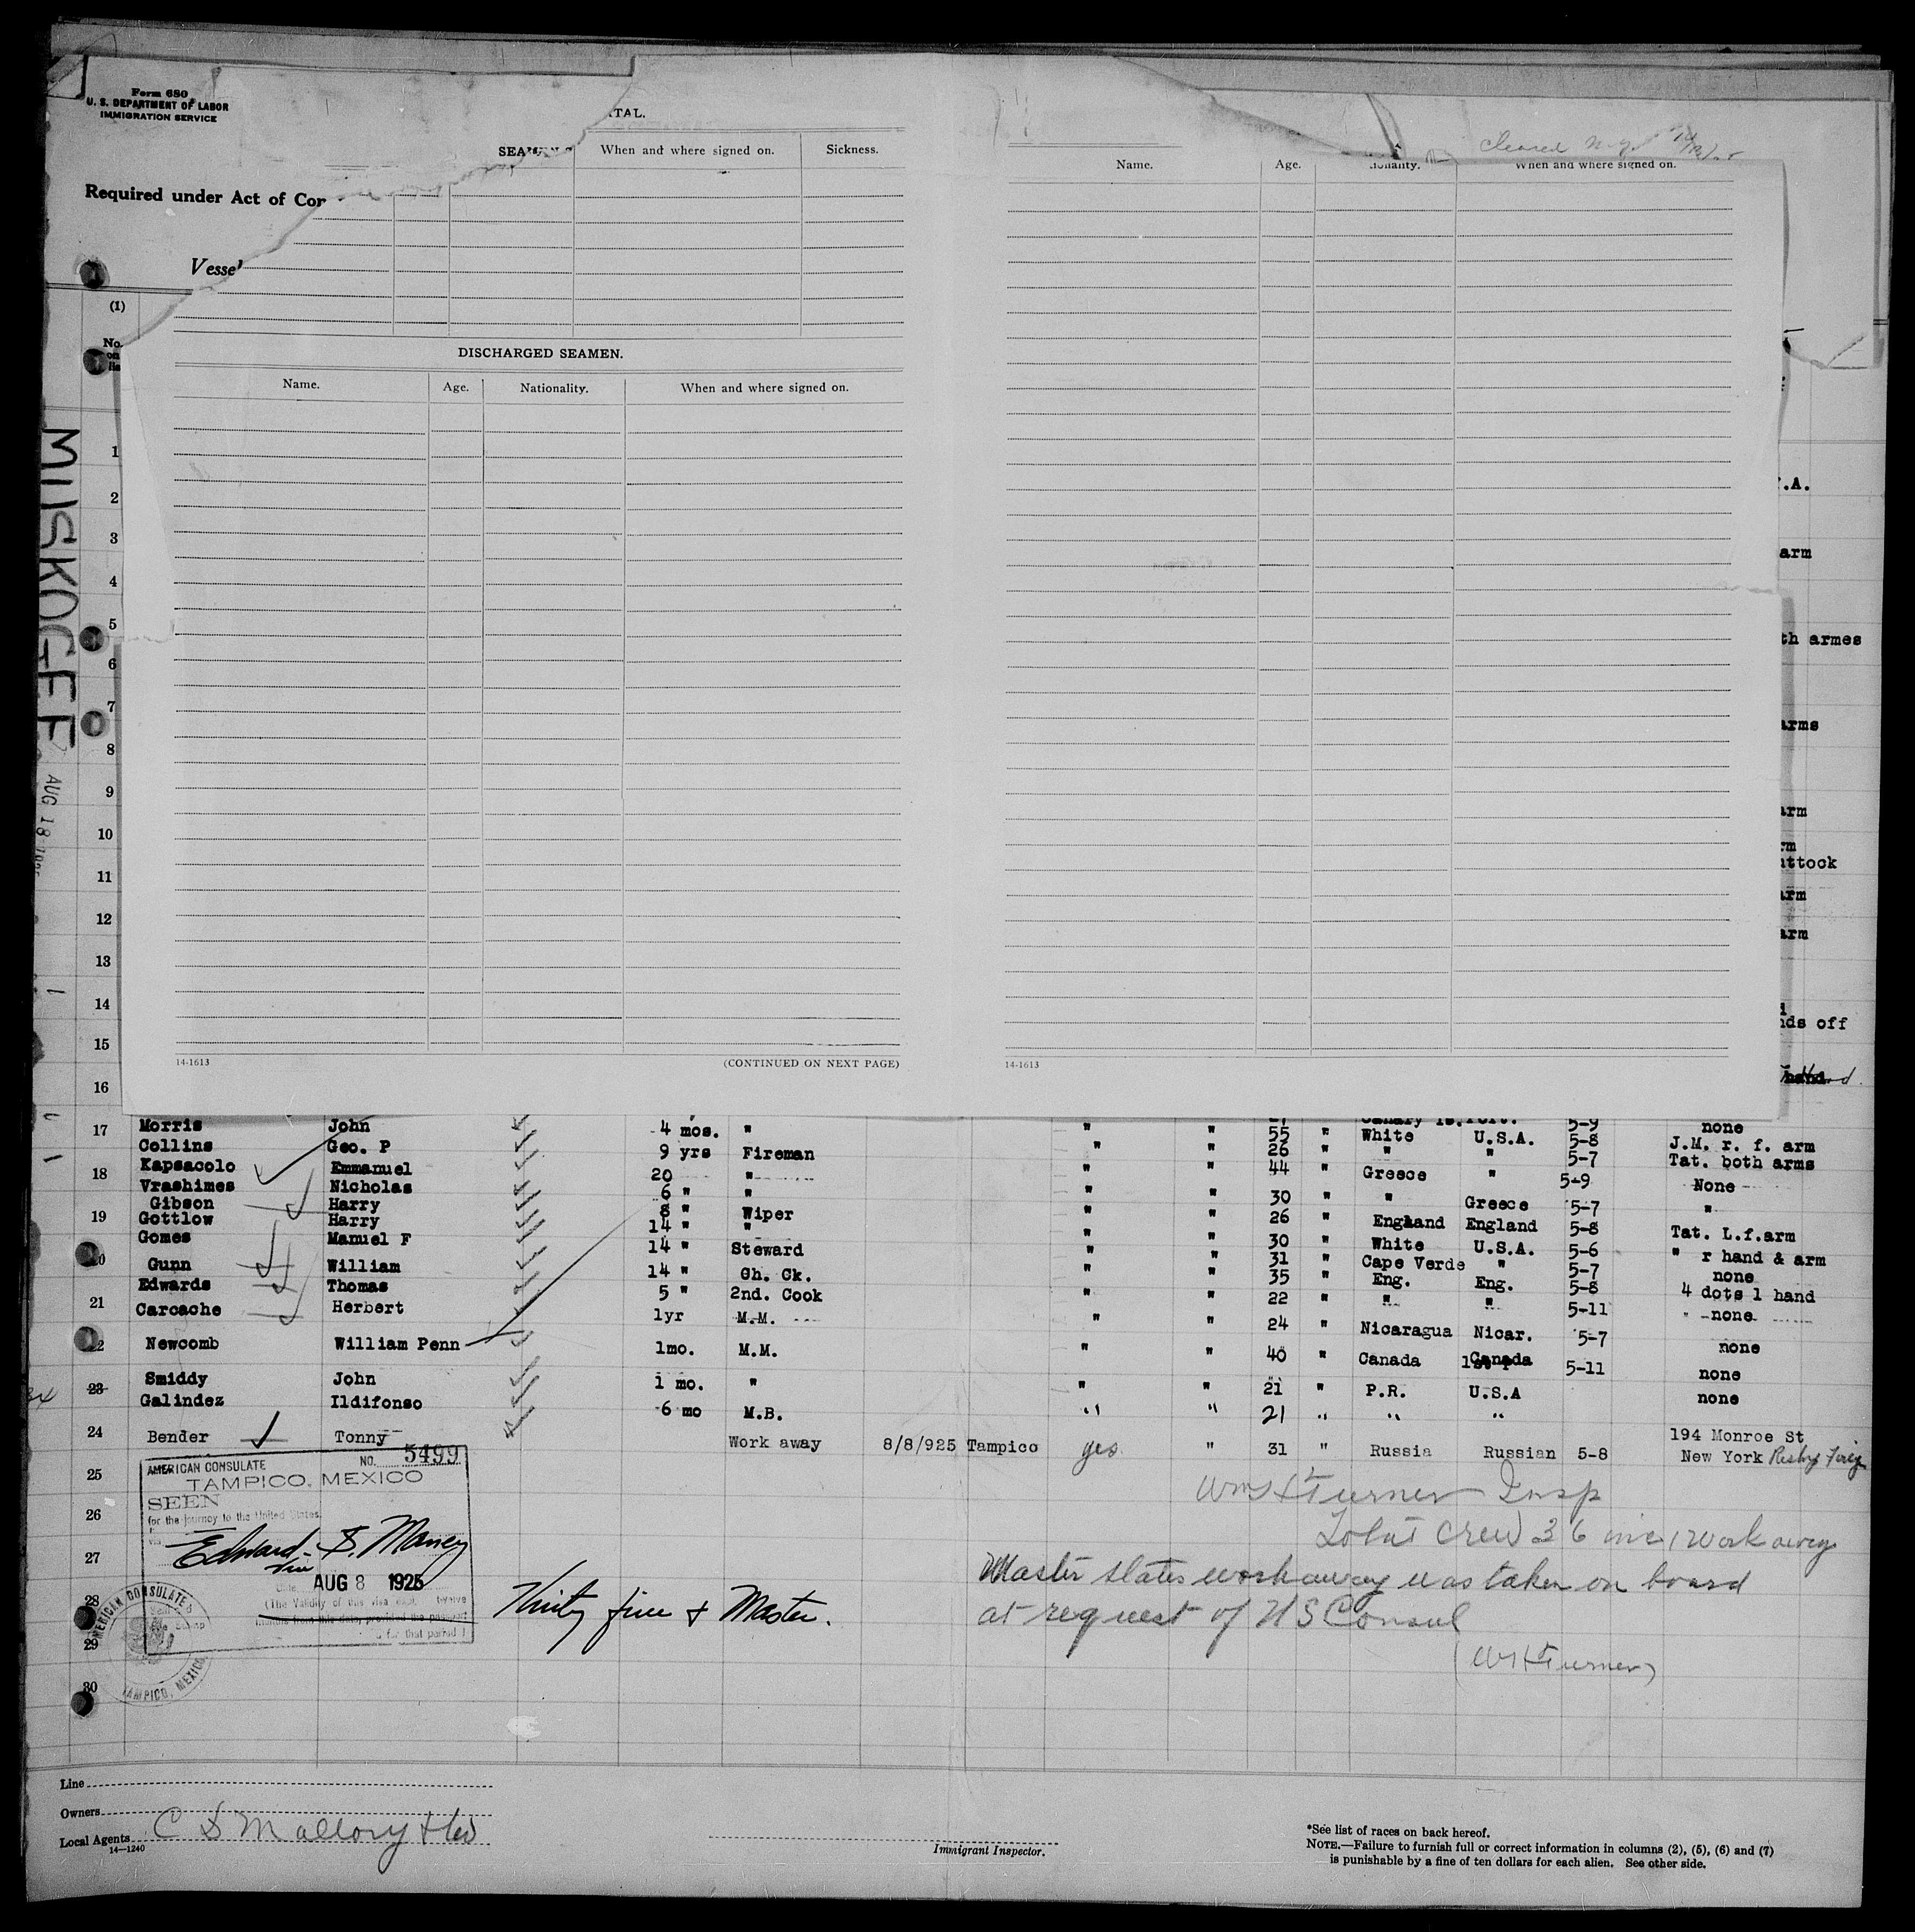 Form 680
U. S. DEPARTMENT OF LABOR
IMMIGRATION SERVICE
Required under Act of
Vessel
(1)
MUSKOGEE
AUG 18
When and where signed on.
Sickness.
DISCHARGED SEAMEN.
Name. Age. Nationality. When and where signed on.
14-1613 (CONTINUED ON NEXT PAGE)
Cleared N.Y.
Name. Age. When and where signed on.
14-1613
arm
th armes
arms
arm
arm
arm
nds off
1
2
3
4
5
6
7
8
9
10
11
12
13
14
15
16
17 Morris John 4 mos. " " " 55 " White U.S.A. 5-9 none
Collins Geo. P 9 yrs Fireman " " 26 " " " 5-8 J.M. r. f. arm
18 Kapsacolo Emmanuel 20 " " " 44 " Greece " 5-7 Tat. both arms
Vrashimes Nicholas 6 " " " " 30 " " Greece 5-9 None
19 Gibson Harry 8 " Wiper " " 26 " England England 5-7 "
Gottlow Harry 14 " " " " 30 " White U.S.A. 5-8 Tat. L.f.arm
Gomes Manuel F 14 " Steward " " 31 " Cape Verde " 5-6 " r hand & arm
Gunn William 14 " Ch. Ck. " " 35 " Eng. Eng. 5-7 none
Edwards Thomas 5 " 2nd. Cook " " 22 " " " 5-8 4 dots l hand
21 Carcache Herbert 1yr M.M. " " 24 " Nicaragua Nicar. 5-11 none
Newcomb William Penn 1mo. M.M. " " 40 " Canada Canada 5-7 none
23 Smiddy John 1 mo. " " " 21 " P.R. U.S.A 5-11 none
Galindez Ildifonso 6 mo M.B. " " 21 " " " none
24 Bender Tonny Work away 8/8/925 Tampico yes " 31 " Russia Russian 5-8 194 Monroe St
New York
25
26
27
28
29
30
AMERICAN CONSULATE NO. 5499
TAMPICO, MEXICO
SEEN
for the journey to the United States
Edward S. Maney
AUG 8 1925
(The Validity of this visa twelve
months from this date, provided the passport
for that period.)
AMERICAN CONSULATE
TAMPICO, MEXICO
Thirty five & Master.
Wm H Turner Insp
Total crew 36 inc 1 work away
Master states workaway was taken on board
at request of US Consul
(WH Turner)
Line
Owners
Local Agents C D Mallory & Co
14—1240
Immigrant Inspector.
*See list of races on back hereof.
NOTE.—Failure to furnish full or correct information in columns (2), (5), (6) and (7)
is punishable by a fine of ten dollars for each alien. See other side.